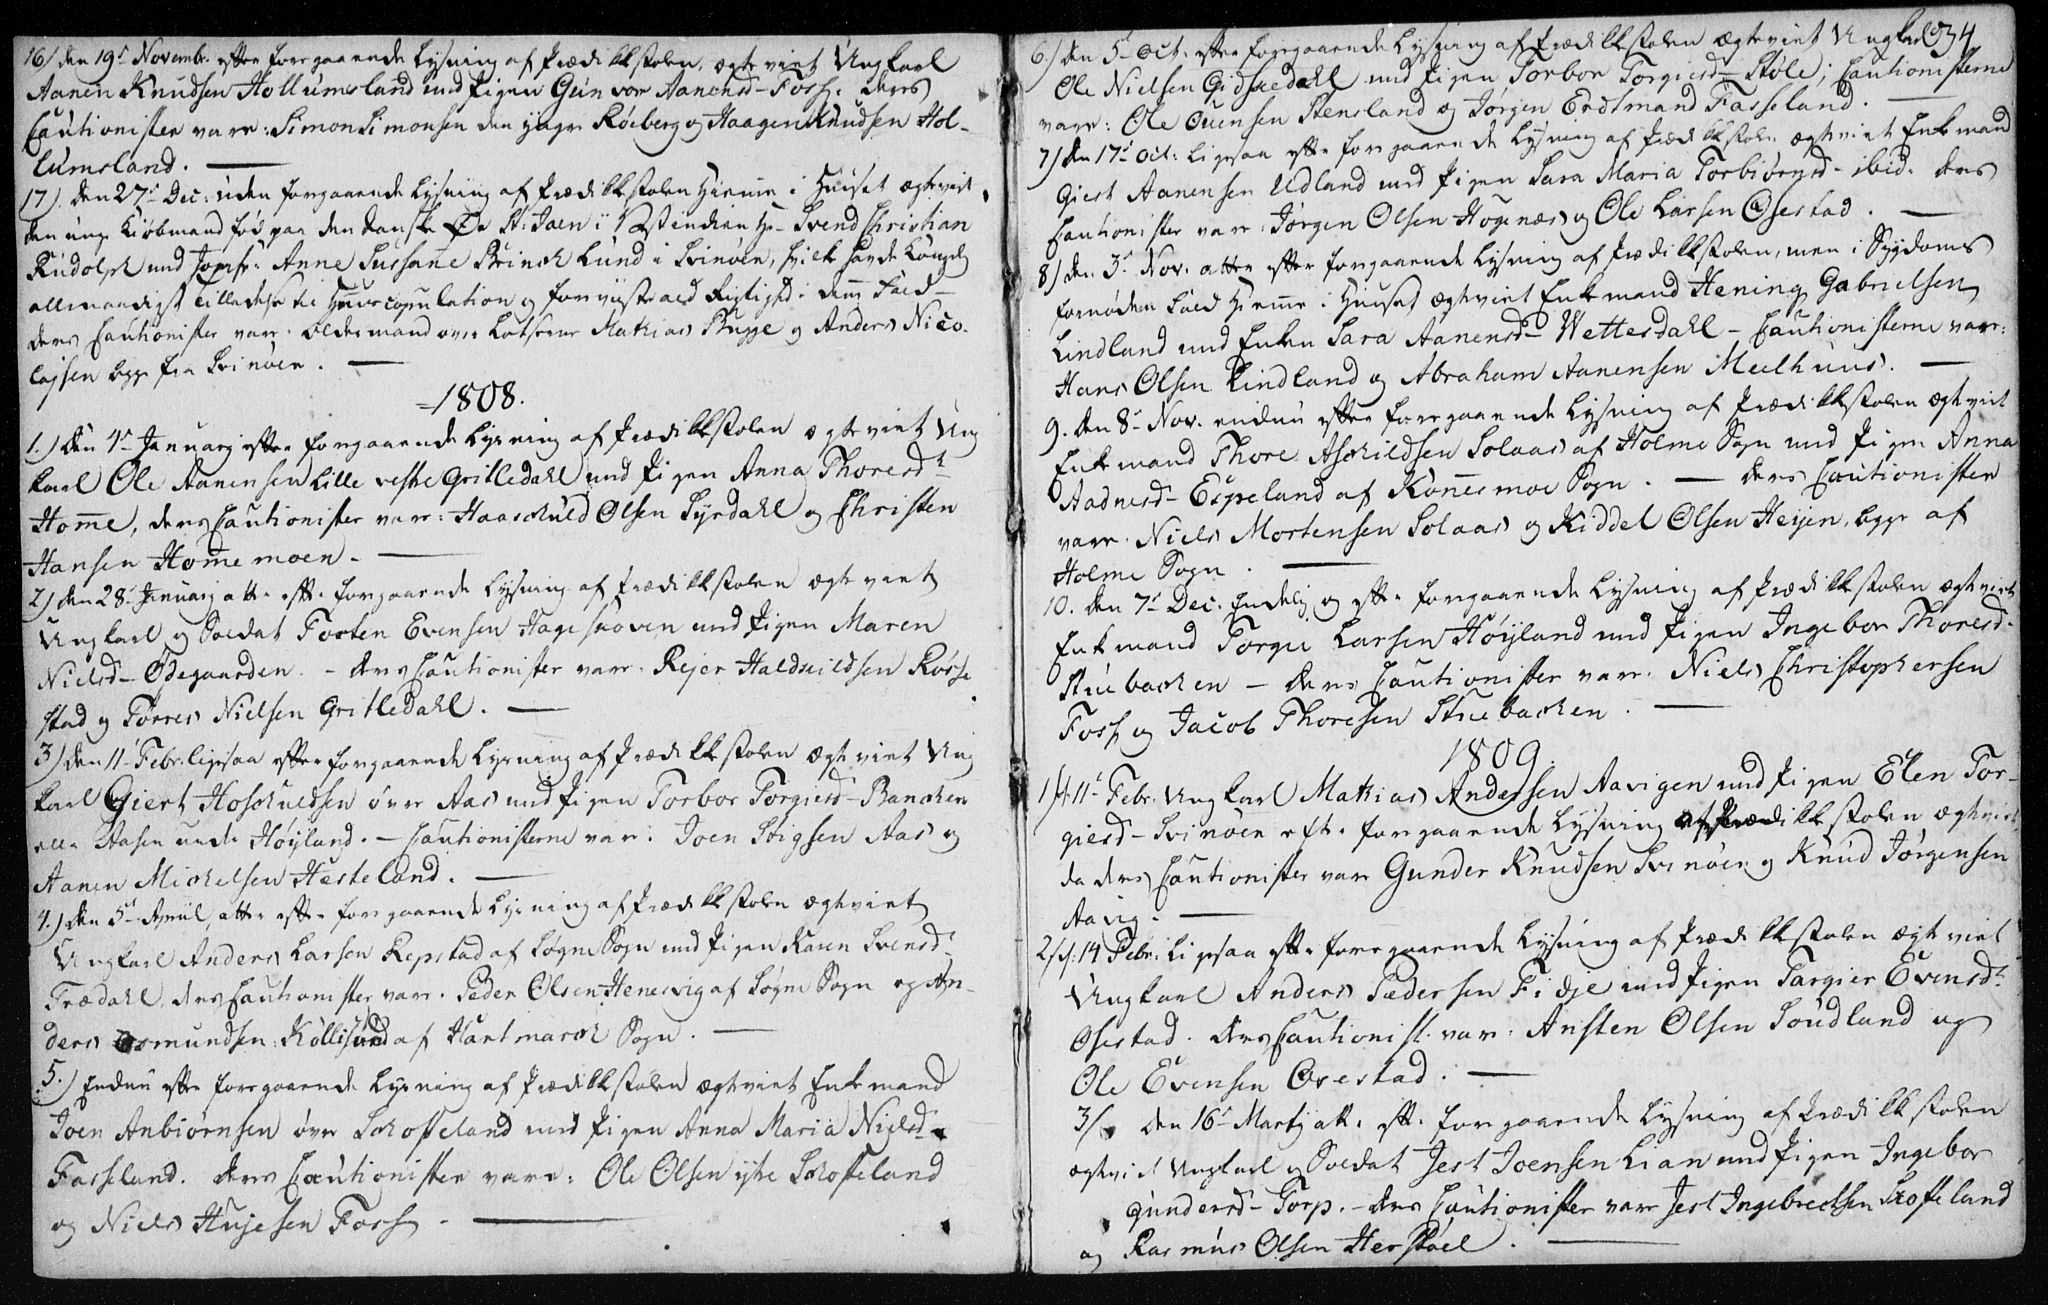 16) den 19de Novembr. efter foregaaende Lysning af Prædikkstolen, egteviet Ungkarl
Aanen Knudsen Hollumsland med Pigen Gunvor Aanensd- Foss. deres
Cautionister vare: Simon Simonsen den yngre Røeberg og Haagen Knudsen Hol-
lumsland.
17). Den 27de Dec: uden foregaaende Lysning af Prædikkstolen Hiemme i Huuset egteviet
den unge Kiøbmand før paa den danske Øe St: Jaen i Vestindien Hr Svend Christian
Rudolph med Jomfr: Anne Sussane Brinch Lund i Svinøen, hvilk havde Kongelig
allernaadigst Tilladelse til Huus copulation og
deres Cautionister var: oldermand over Lotserne Mathias Bugge og Anders Nico-
lajsen begge fra Svinøen.
1808.
1.) Den 4de January efter foregaaende Lysning af Prædikkstolen egteviet Ung
karl Ole Aanensen Lille vestre Gritledahl med Pigen Anna Thoresdr
Home, deres Cautionister var: Haaschuld Olsen Syrdahl og Christen
Hansen Home moen.
2) den 28de January atter efter foregaaende Lysning af Prædikkstolen egteviet
Ungkarl og Soldat Torten Evensen Hageskoven med Pigen Maren
Nielsd- Ødegaarden. - deres Cautionister var: Rejer Haldvildsen Rosse
stad og Torres Nielsen Gritledahl.
3) den 11 Febr. ligesaa efter foregaaende Lysning af Prædikkstolen Egteviet Ung
karl Giert Hoschuldsen øvre Aas med Pigen Torbor Torgiersd- Bancken
eller Aasen under Høyland. - Cautionisterne var: Joen Stigsen Aas og
Aanen Michelsen Hesteland.
4.) den 5te April atter efter foregaaende Lysning af Prædikkstolen egteviet
Ungkarl Anders Larsen Repstad af Søgne Sogn med Pigen Karen Svensdr
Trædahl. deres Cautionister var. Peder Olsen Henesvig af Søgne Sogn og An-
ders Osmundsen Kollisund af Hartmarck Sogn.
5.) Endnu efter foregaaende Lysning af Prædikkstolen egteviet Enkemand
Joen Anbiørnsen øvre Skofteland med Pigen Anna Maria Nielsd-
Fasseland. Deres Cautionister vare: Ole Olsen ytre Skofteland
og Niels Hujesen Foss.
34
6.) den 5te Oct. efter foregaaende Lysning af Prædikkstolen egteviet Ungkarl
Ole Nielsen Gidskedahl med Pigen Torbor Torgiersd- Støle; Cautionisterne
vare: Ole Ouensen Stensland og Jørgen Erdtmand Fasseland.
7) den 17de Oct: ligesaa efter foregaaende Lysning af Prædikkstolen egteviet Enkemand
Giert Aanensen Udland med Pigen Sara Maria Torbiørnsd- ibid. deres
Cautionister var: Jørgen Olsen Høgenæs og Ole Larsen Osestad.
8) den 3de Nov. atter efter foregaaende Lysning af Prædikkstolen, men i Sygdoms
fornøden hiemme i Huuset, egteviet Enkemand Hening Gabrielsen
Lindland med Enken Sara Aanensd- Wettesdahl - Cautionisterne var:
Hans Olsen Lindland og Abraham Aanensen Meelhuus.
9. den 8- Nov. endnu efter foregaaende Lysning af Prædikkstolen egteviet
Enkemand Thore Aschildsen Solaas af Holme Sogn med Pigen Anna
Aadnesd- Espeland af Konnesmoe Sogn. - deres Cautionister
vare. Niels Mortensen Solaas og Kiddel Olsen Heyen, begge af
Holme Sogn.
10. den 7de Dec. Endelig og efter foregaaende Lysning af Prædikkstolen egteviet
Enkemand Torgie Larsen Høyland med Pigen Ingebor Thoresd-
Stuebacken - deres Cautionister var: Niels Christophersen
Foss og Jacob Thoresen Stuebacken.
1809.
1/ d. 11te Febr. Ungkarl Mathias Andersen Aavigen med Pigen Elen Tor-
giersd- Svinøen eft. foregaaende Lysning af Prædikkstolen egteviet,
da deres Cautionister var Gunder Knudsen Svinøen og Knud Jørgensen
Aavig.
2/ d: 14 Febr: Ligesaa efter foregaaende Lysning af Prædikkstolen egteviet
Ungkarl Anders Pedersen Fidje med Pigen Targier Evensdr
Osestad. deres Cautionist. var: Ansten Olsen Soudland og
Ole Evensen Ovestad.
3/ den 16de Marty att. eft. foregaaende Lysning af Prædikkstolen
egtevid Ungkarl og Soldat Jest Joensen Lian med Pigen Ingebor
Gundersd- Torp. - deres Cautionister vare Jest Ingebrectsen Skofteland
og Rasmus Olsen Herstøel.